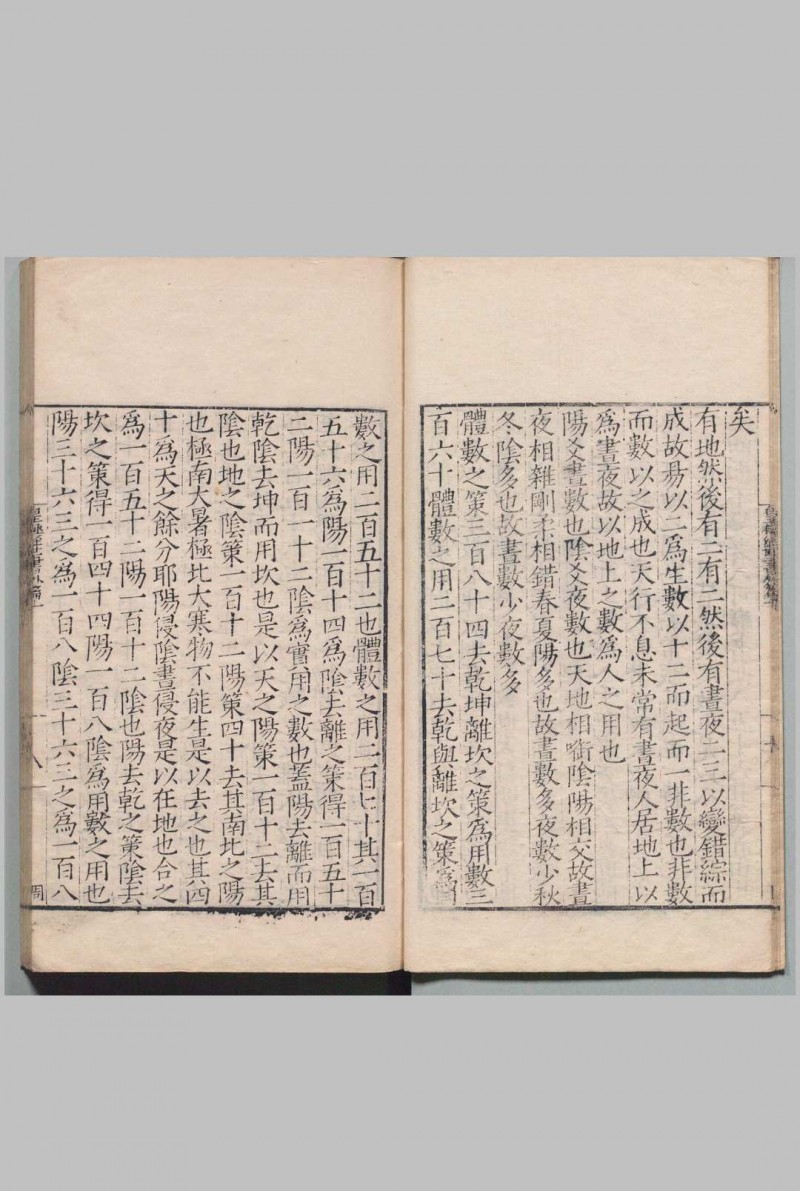 矣
有地然後有二有二然後有晝夜二三以變錯綜而
成故昜以二爲生數以十二而起而一非數也非數
而數以之成也天行不息未常有晝夜人居地上以
爲晝夜故以地上之數爲人之用也
陽爻晝數也陰爻夜數也天地相銜陰陽相交故晝
夜相雜剛柔相錯春夏陽多也故晝數多夜數少秋
冬陰多也故晝數少夜數多
體數之策三百八十四去乾坤離坎之策爲用數三
百六十體數之用二百七十去乾與離坎之策爲用
數之用二百五十二也體數之用二百七十其一百
五十六爲陽一百十四爲陰去離之策得一百五十
二陽一百一十二陰爲實用之數也蓋陽去離而用
乾陰去坤而用坎也是以天之陽策一百十二去其
陰也地之陰策一百十二陽策四十去其南北之陽
也極南大暑極北大寒物不能生是以去之也其四
十爲天之餘分耶陽侵陰晝侵夜是以在地也合之
爲一百五十二陽一百十二陰也陽去乾之策陰去
坎之策得一百四十四陽一百八陰爲用數之用也
陽三十六三之爲一百八陰三十六三之爲一百八
八
周